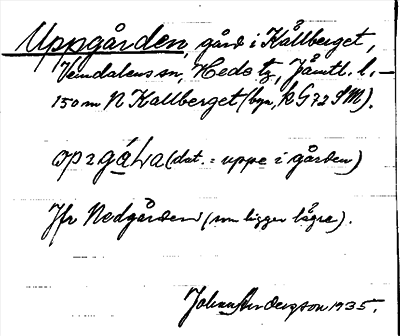 Uppgården, gård i Kållberget,
Vemdalens sn, Heds tg, Jämtl. l. –
150 m N Kallberget (byn, k G 72 SM).
(dat. = uppe i gården)
Jfr Nedgården (som ligger lägre).
Johan Anderzson 1935.